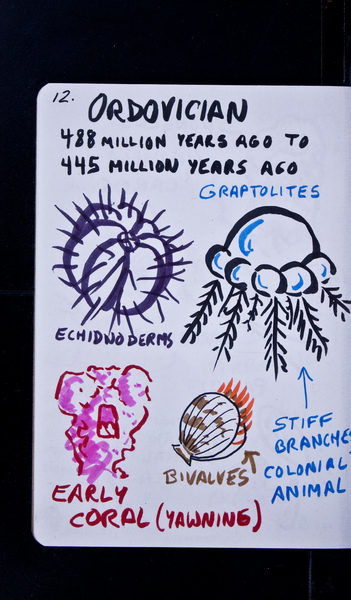 12.
ORDOVICIAN
488 MILLION YEARS AGO TO
445 MILLION YEARS AGO
GRAPTOLITES
ECHIDNODERMS
STIFF
BRANCHES
COLONIAL
ANIMAL
BIVALVES
EARLY
CORAL (YAWNING)